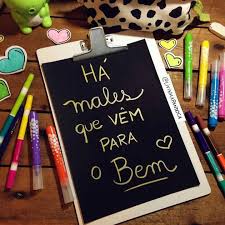 Há
males
que vêm
PARA
o Bem